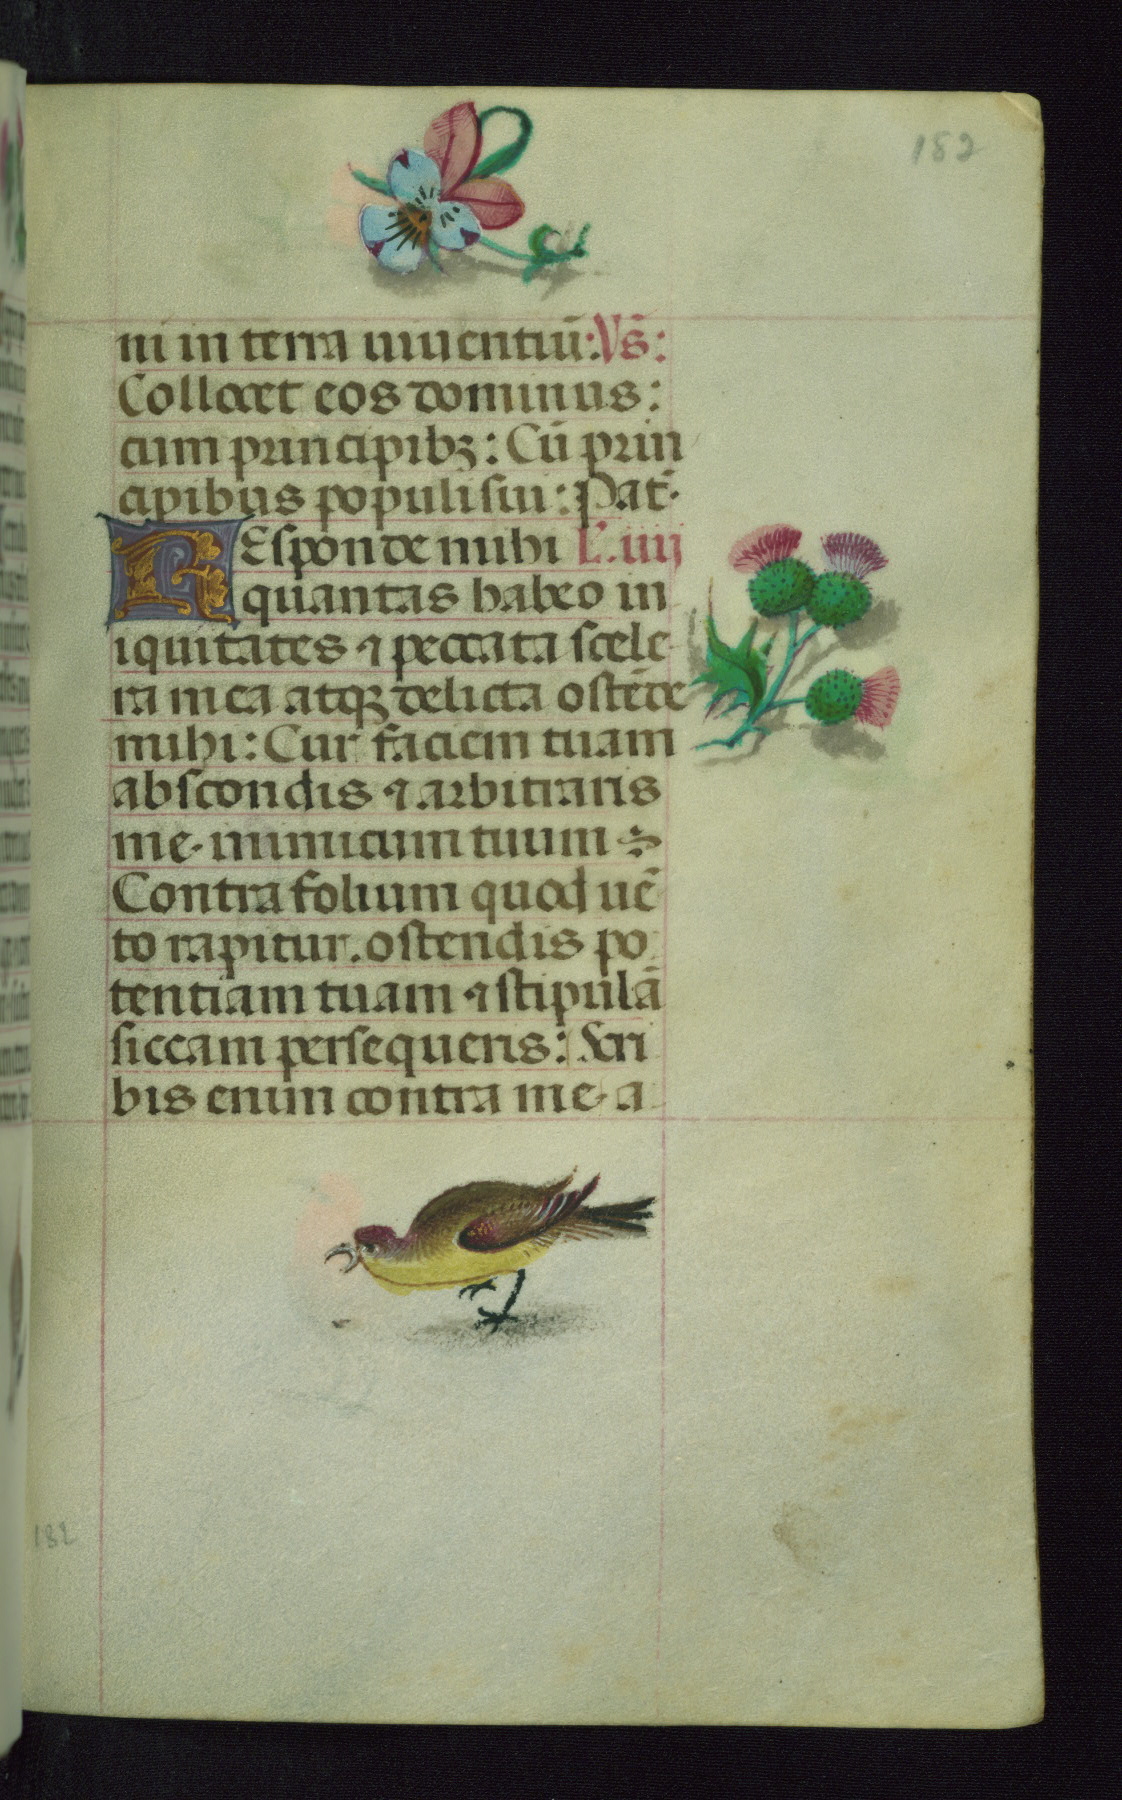 182
ni in terra uiuentiū: Vs̄:
Collocet eos dominus:
cum principibꝫ: Cū prin
cipibus populi sui: Pat̄.
Responde mihi L. iiij
quantas habeo in
iquitates ⁊ peccata scele
ra mea atqꝫ delicta ostēde
mihi: Cur faciem tuam
abscondis ⁊ arbitraris
me inimicum tuum
Contra folium quod uē
to rapitur. ostendis po
tentiam tuam ⁊ stipulā
siccam persequeris: Scri
bis enim contra me a
182